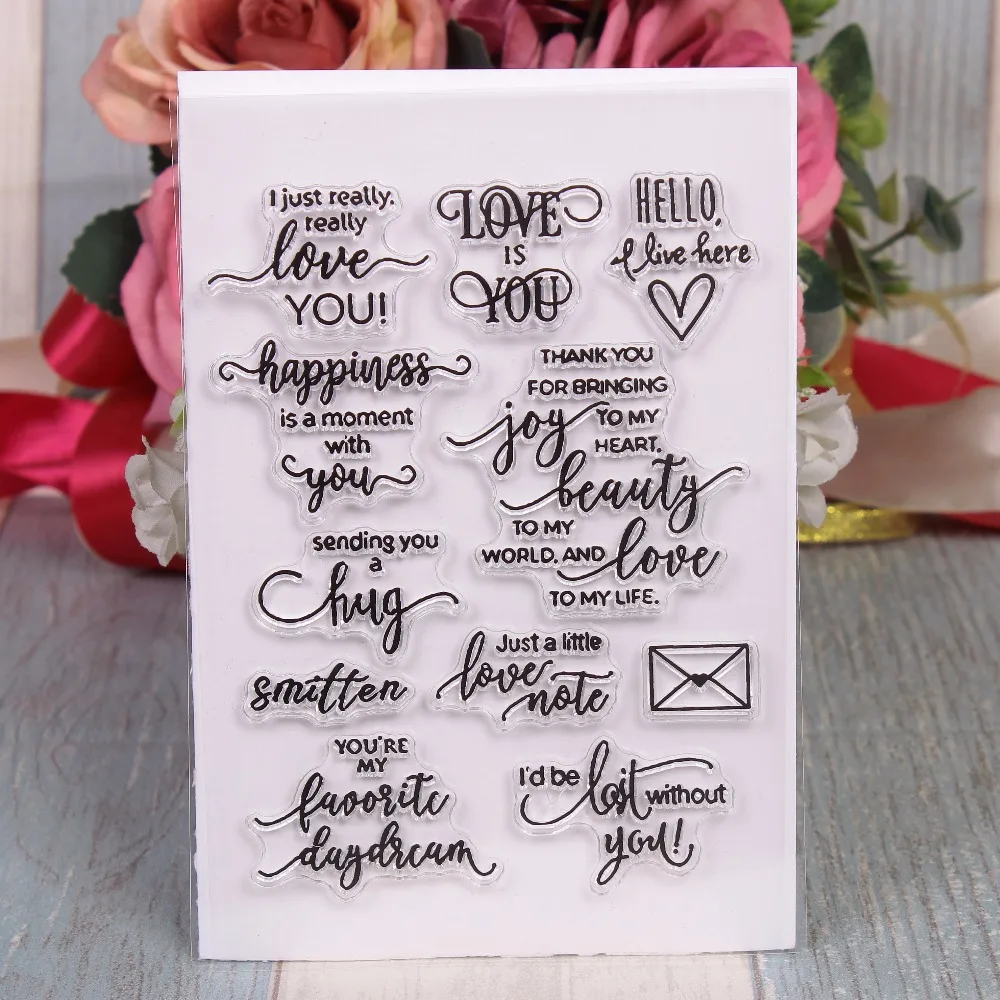 I just really,
really
love
YOU!
LOVE
IS
YOU
HELLO,
I live here
happiness
is a moment
with
you
THANK YOU
FOR BRINGING
joy TO MY
HEART,
beauty
TO MY
WORLD, AND love
TO MY LIFE.
sending you
a
hug
Just a little
love
note
smitten
YOU'RE
MY
favorite
daydream
I'd be lost without
you!